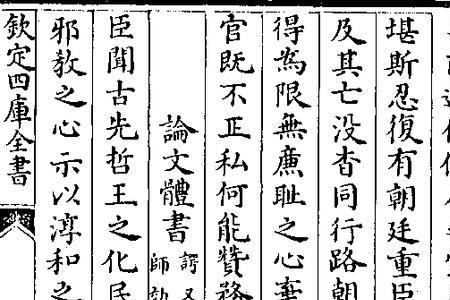 堪斯忍復有朝廷重臣
及其亡没杳同行路朝
得為限無亷耻之心棄
官既不正私何能贊務
論文體書 諤又
師
臣聞古先哲王之化民
邪教之心示以淳和之
欽定四庫全書